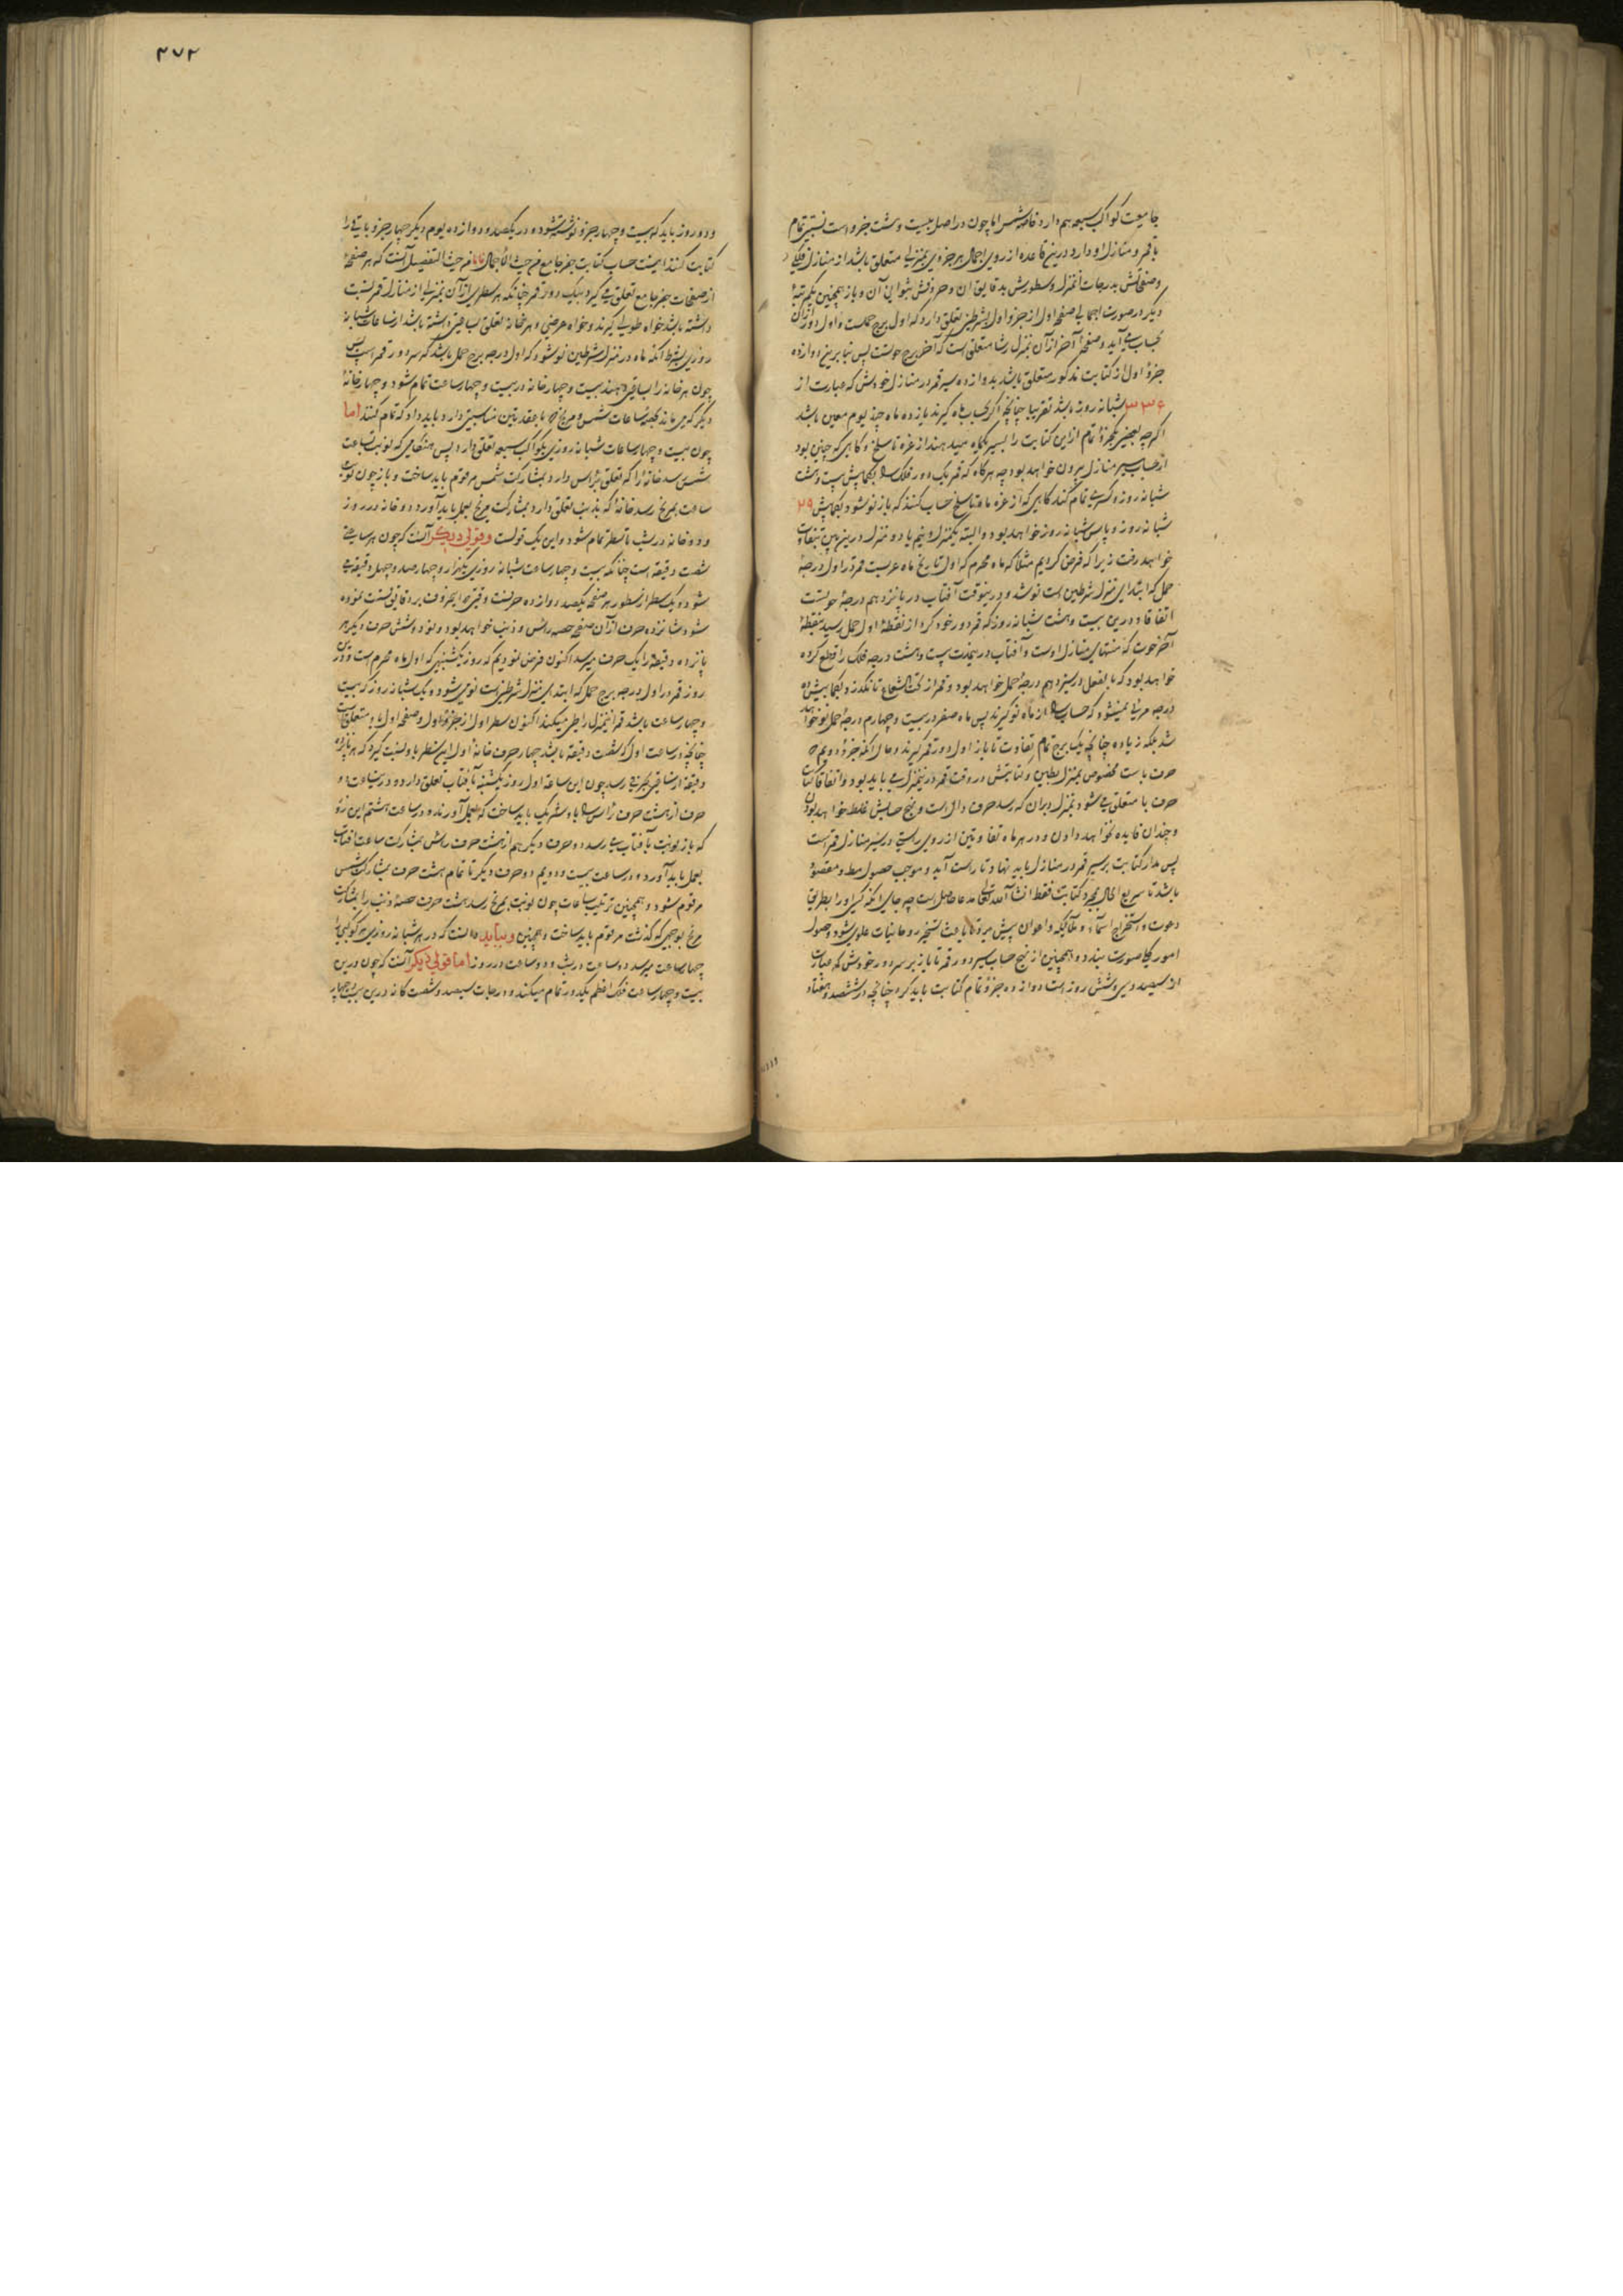 جامعیت کواکب سبعه هم دارد خاصه شمس اما چون در اصل بیست و هشت جزو است نسبتی تمام
با قمر و منازل او دارد و درین قاعده از روی اجمال هر جزوی بمنزلی متعلق باشد از منازل فلکی
و صفحاتش بدرجات آنمنزل و سطورش بدقایق آن و حروفش بثوانی آن و باز همچنین بیکمرتبهٔ
دیگر در صورت اجمالی صفحه اول از جزو اول بشرطین تعلق دارد که اول برج حملست و اول دور از آن
بحساب می آید و صفحهٔ آخر از آن بمنزل رشا متعلق است که آخر برج حوتست پس بنابرین دوازده
جزو اول از کتابت مذکور متعلق باشد بدوازده سیر قمر در منازل خودش که عبارت از
۳۳۶ شبانه روز باشد تقریبا چنانچه اگر بحساب ماه گیرند یازده ماه و چند یوم معین باشد
اگرچه بعضی یکجزو تمام از این کتابت را بسیر یکماه میدهند از غره تا سلخ و گاهی که چنین بود
از حساب سیر منازل بیرون خواهد بود چه هرگاه که قمر یک دور فلک را بکمابیش بیست و هشت
شبانه روز و کسری تمام کند گاهی که از غره ماه تا سلخ حساب کنند که باز نو شود بکمابیش ۲۹
شبانه روز و یا سی شبانه روز خواهد بود و البته یکمنزل و نیم یا دو منزل درین بین تفاوت
خواهد رفت زیرا که فرض کردیم مثلا که ماه محرم که اول تاریخ ماه عربیست قمر در اول درجهٔ
حمل که ابتدای منزل شرطین است نو شد و درینوقت آفتاب در پانزدهم درجهٔ حوتست
اتفاقا و درین بیست و هشت شبانه روز که قمر دور خود کرد از نقطهٔ اول حمل رسید بنقطهٔ
آخر حوت که منتهای منازل اوست و آفتاب در یمدت بیست و هشت درجه فلک را قطع کرده
خواهد بود که بالفعل در سیزدهم درجهٔ حمل خواهد بود و قمر از تحت الشعاع تا نگذرد و بکمابیش ده
درجه مرئی نمیشود که حساب را از ماه نو گیرند پس ماه صفر در بیست و چهارم درجهٔ حمل نو خواهد
شد بلکه زیاده چنانچه یک برج تمام تفاوت تا باز اول دور قمر گیرند و حال آنکه جزو دویم ح
حرف با ست مخصوص بمنزل بطین و کتابتش در وقت قمر در ینمنزل می باید بود و اتفاقا کتابت
حرف با متعلق می شود بمنزل دبران که رسد حرف دال است و نهج حسابش غلط خواهد بودن
و چندان فایده نخواهد دادن و در هر ماه تفاوتین از روی راستی در سیر منازل قمر است
پس مدار کتابت بر سیر قمر در منازل باید نهاد تا راست آید و موجب حصول مطلب و مقصود
باشد تا سریع الحال بمجرد کتابت فقط انشا الله تعالی مدعا حاصل است چه جای آنکه کسی او را بطریق
دعوت و استخراج اسماء و ملایکه و اعوان پیش برد تا باعث تسخیر روحانیات علوی شود و حصول
امور کلی صورت بندد و همچنین از نهج حساب سیر دور قمر تا باز بر سر دور خودش که عبارت
از سیصد و سی و شش روز است دوازده جزو تمام کتابت باید کرد چنانچه در ششصد و هفتاد
۳۷۲
و دو روز باید که بیست و چهار جزو نوشته شود و در یکصد و دوازده یوم دیگر چهار جزو باقی را
کتابت کنند اینست حساب کتابت جفر جامع من حیث الاجمال اما من حیث التفصیل آنست که هر صفحهٔ
از صفحات جفر جامع تعلق می گیرد بیک دور قمر چنانکه هر سطری از آن بمنزلی از منازل قمر نسبت
داشته باشد خواه طولی گیرند و خواه عرضی و هر خانه تعلق بساعتی داشته باشد از ساعات شبانه
روزی بشرط آنکه ماه در منزل شرطین نو شود که اول درجه برج حمل باشد که سر دور قمر است پس
چون هر خانه را بساعتی دهند بیست و چهار خانه در بیست و چهار ساعت تمام شود و چهار خانهٔ
دیگر که می ماند بحصهٔ ساعات شمس و مریخ که با عقدتین مناسبتی دارد باید داد که تمام کنند اما
چون بیست و چهار ساعات شبانه روزی بکواکب سبعه تعلق دارد پس هنگامی که نوبت بساعت
شمس رسد خانهٔ را که تعلق برأس دارد بمشارکت شمس مرقوم باید ساخت و باز چون نوبت
ساعت بمریخ رسد خانهٔ که بذنب تعلق دارد بمشارکت مریخ بعمل باید آورد دو خانه در روز
و دو خانه در شب تا سطر تمام شود و این یک قولست و قولی دیگر آنست که چون هر ساعتی
شصت دقیقه است چنانکه بیست و چهار ساعت شبانه روزی یکهزار و چهار صد و چهل دقیقه می
شود و یک سطر از سطور هر صفحه یکصد و دوازده حرفست وقتی که حروف بر دقایق قسمت نموده
شود شانزده حرف از آن صفحه حصه رأس و ذنب خواهد بود و نود و شش حرف دیگر هر
پانزده دقیقه را یک حرف میرسد اکنون فرض نمودیم که روز یکشنبهی که اول ماه محرم است و درین
روز قمر در اول درجه برج حمل که ابتدای منزل شرطین است نوی شود و یک شبانه روز که بیست
و چهار ساعت باشد قمر آنمنزل را طی میکند اکنون سطر اول از جزو اول و صفحه اول باو متعلق است
چنانچه در ساعت اول که شصت دقیقه باشد چهار حرف خانهٔ اول این سطر باو نسبت گیرد که هر پانزده
دقیقه از ساعتی بحرفی رسد چون این ساعه اول روز یکشنبه بآفتاب تعلق دارد و درین ساعت دو
حرف از هشت حرف رأس را باو شریک باید ساخت که بعمل آورند و در ساعت هشتم این روز
که باز نوبت بآفتاب می رسد دو حرف دیگر هم از هشت حرف رأس بمشارکت ساعت آفتاب
بعمل باید آورد و در ساعت بیست و دویم دو حرف دیگر تا تمام هشت حرف بمشارکت شمس
مرقوم شود و همچنین ترتیب ساعات چون نوبت بمریخ رسد هشت حرف حصهٔ ذنب را بمشارکت
مریخ بوجهی که گذشت مرقوم باید ساخت و همچنین و بباید دانست که در هر شبانه روزی هر کوکبی را
چهار ساعت میرسد دو ساعت در شب و دو ساعت در روز اما قولی دیگر آنست که چون درین
بیست و چهار ساعت فلک اعظم یکدور تمام میکند و درجات سیصد و شصت گانه درین بیست و چهار